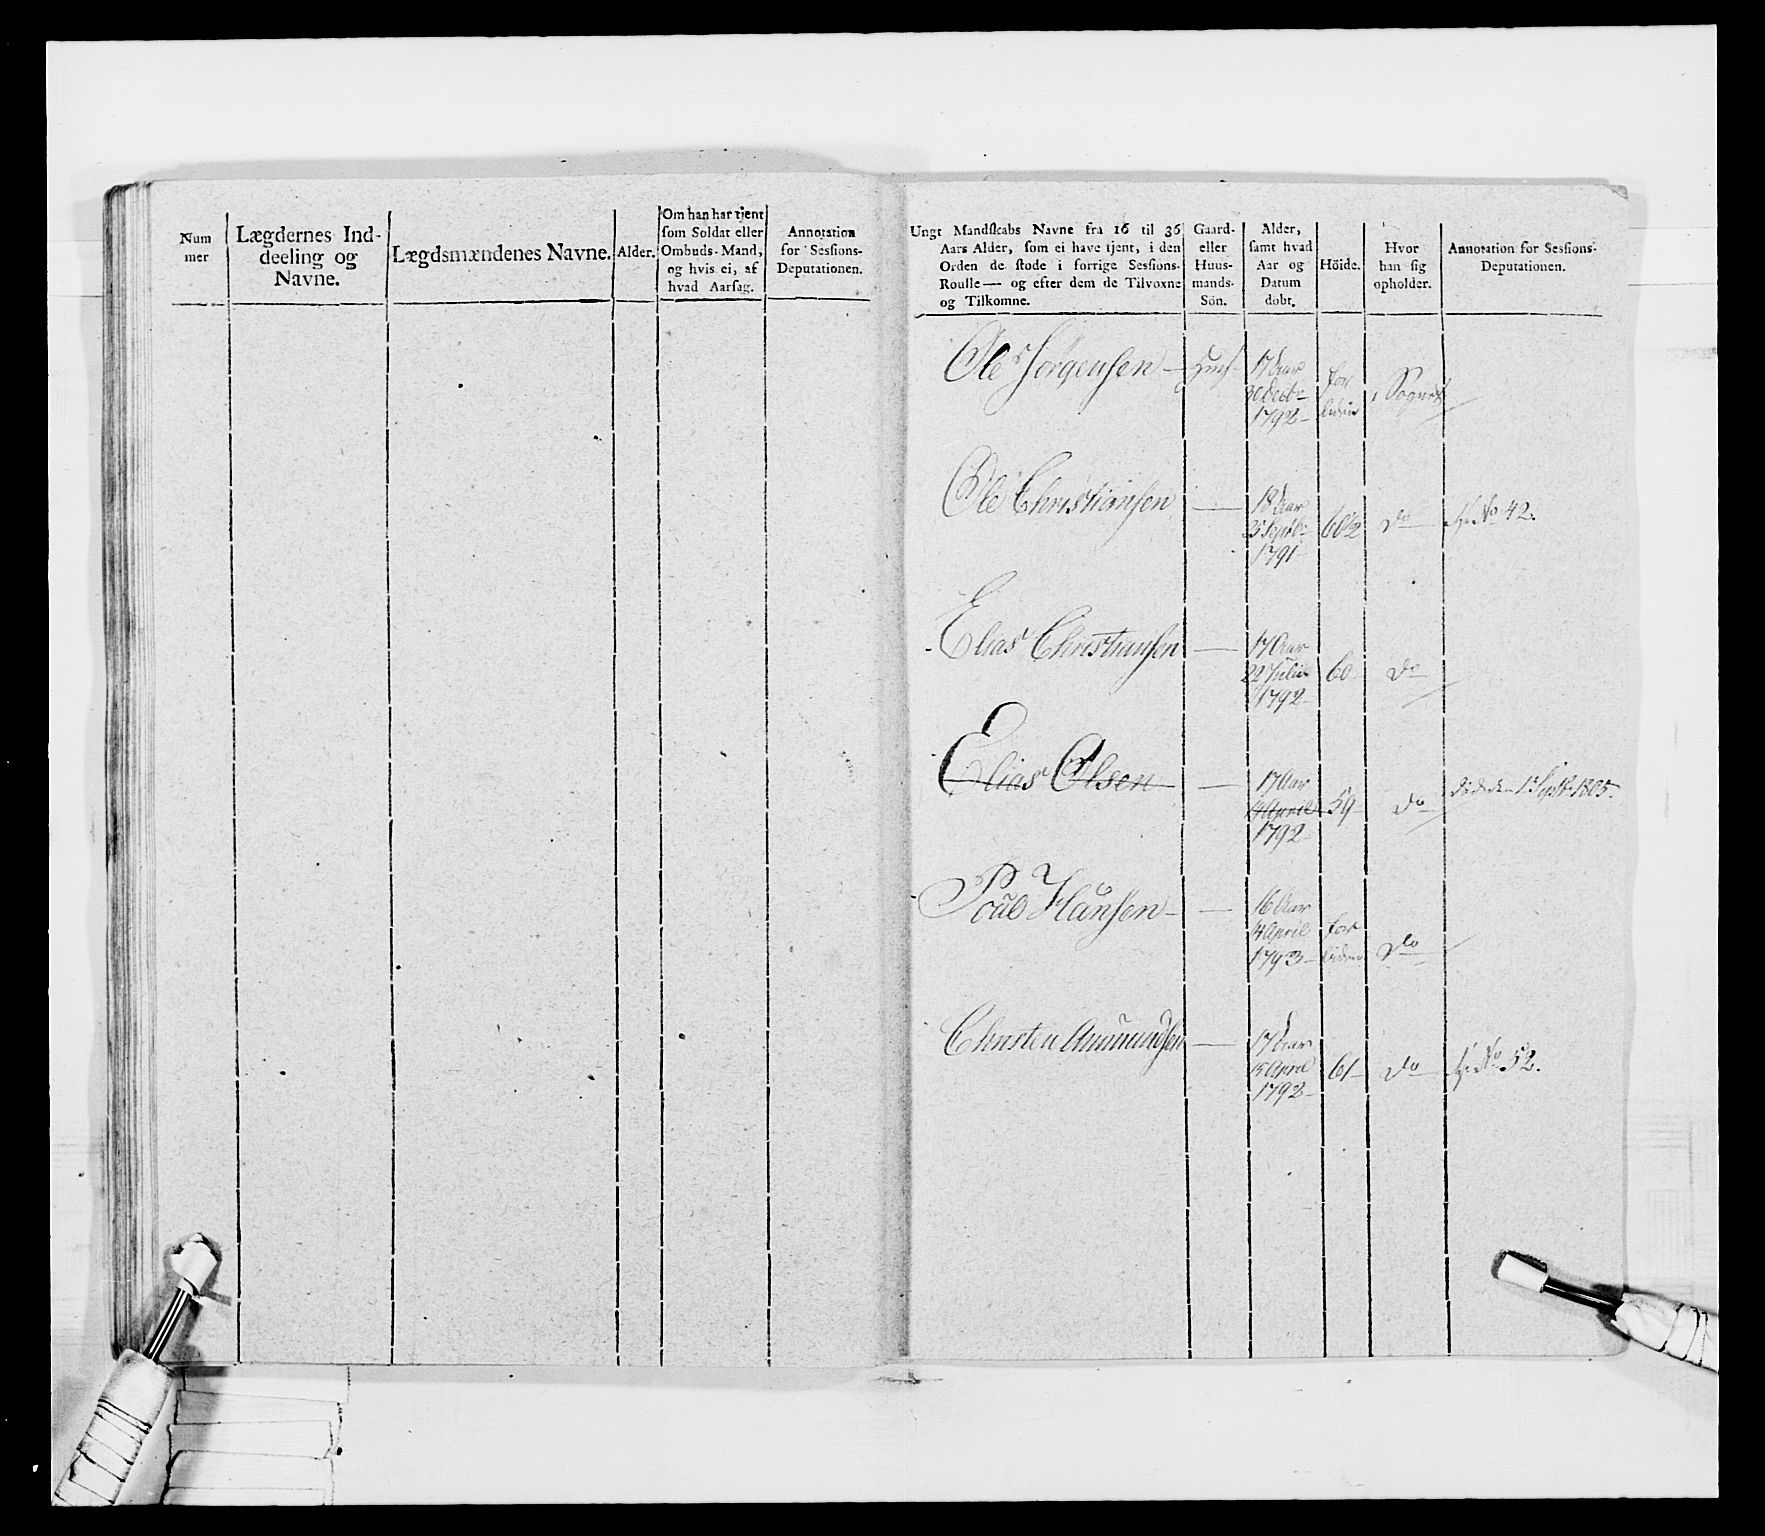 Num
mer
Lægdernes Ind-
deeling og
Navne.
Lægdsmændenes Navne.
Alder.
Om han har tjent
som Soldat eller
Ombuds-Mand,
og hvis ei, af
hvad Aarsag.
Annotation
for Sessions-
Deputationen.
Ungt Mandskabs Navne fra 16 til 36
Aars Alder, som ei have tjent, i den
Orden de stode i forrige Sessions-
Roulle — og efter dem de Tilvoxne
og Tilkomne.
Gaard-
eller
Huus-
mands-
Søn.
Alder,
samt hvad
Aar og
Datum
døbt.
Höide.
Hvor
han sig
opholder.
Annotation for Sessions-
Deputationen.
Ole Jørgensen — Huus- 17 Aar
1792 –
For
i Sognet
Ole Christiansen — 18 Aar
25 Septbr
1791 –
60½ do No 42.
Elias Christiansen — 17 Aar
22 Julii
1792 –
60 – do
Elias Olsen — 17 Aar
14 April
1792 –
59 – do døde den 13 Septbr 1805.
Poül Hansen – — 16 Aar
14 April
1793 –
For
do
Christen Ammundsen — 17 Aar
15 April
1792 –
61 – do No 52.